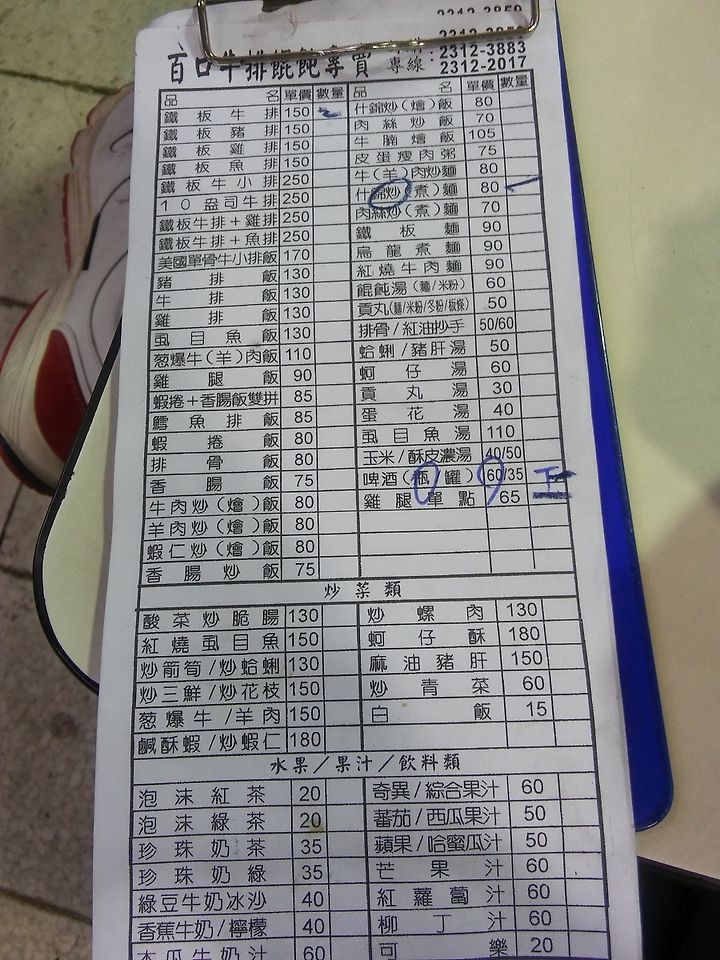 百口牛排餛飩專賣
專線:2312-3883
2312-2017
品名 單價 數量
鐵板牛排 150
鐵板豬排 150
鐵板雞排 150
鐵板魚排 150
鐵板牛小排 250
10盎司牛排 250
鐵板牛排+雞排 250
鐵板牛排+魚排 250
美國單骨牛小排飯 170
豬排飯 130
牛排飯 130
雞排飯 130
虱目魚飯 130
葱爆牛(羊)肉飯 110
雞腿飯 90
蝦捲+香腸飯雙拼 85
鱈魚排飯 85
蝦捲飯 80
排骨飯 80
香腸飯 75
牛肉炒(燴)飯 80
羊肉炒(燴)飯 80
蝦仁炒(燴)飯 80
香腸炒飯 75
品名 單價 數量
什錦炒(燴)飯 80
肉絲炒飯 70
牛腩燴飯 105
皮蛋瘦肉粥 75
牛(羊)肉炒麵 80
什錦炒(煮)麵 80
肉絲炒(煮)麵 70
鐵板麵 90
烏龍煮麵 90
紅燒牛肉麵 90
餛飩湯(麵/米粉) 60
貢丸(麵/米粉/冬粉/板條) 50
排骨/紅油抄手 50/60
蛤蜊/豬肝湯 50
蚵仔湯 60
貢丸湯 30
蛋花湯 40
虱目魚湯 110
玉米/酥皮濃湯 40/50
啤酒(瓶罐) 60/35
雞腿單點 65
炒菜類
酸菜炒脆腸 130
紅燒虱目魚 150
炒箭筍/炒蛤蜊 130
炒三鮮/炒花枝 150
葱爆牛/羊肉 150
鹹酥蝦/炒蝦仁 180
炒螺肉 130
蚵仔酥 180
麻油豬肝 150
炒青菜 60
白飯 15
水果/果汁/飲料類
泡沫紅茶 20
泡沫綠茶 20
珍珠奶茶 35
珍珠奶綠 35
綠豆牛奶冰沙 40
香蕉牛奶/檸檬 40
木瓜牛奶汁 60
奇異/綜合果汁 60
蕃茄/西瓜果汁 50
蘋果/哈蜜瓜汁 50
芒果汁 60
紅蘿蔔汁 60
柳丁汁 60
可樂 20